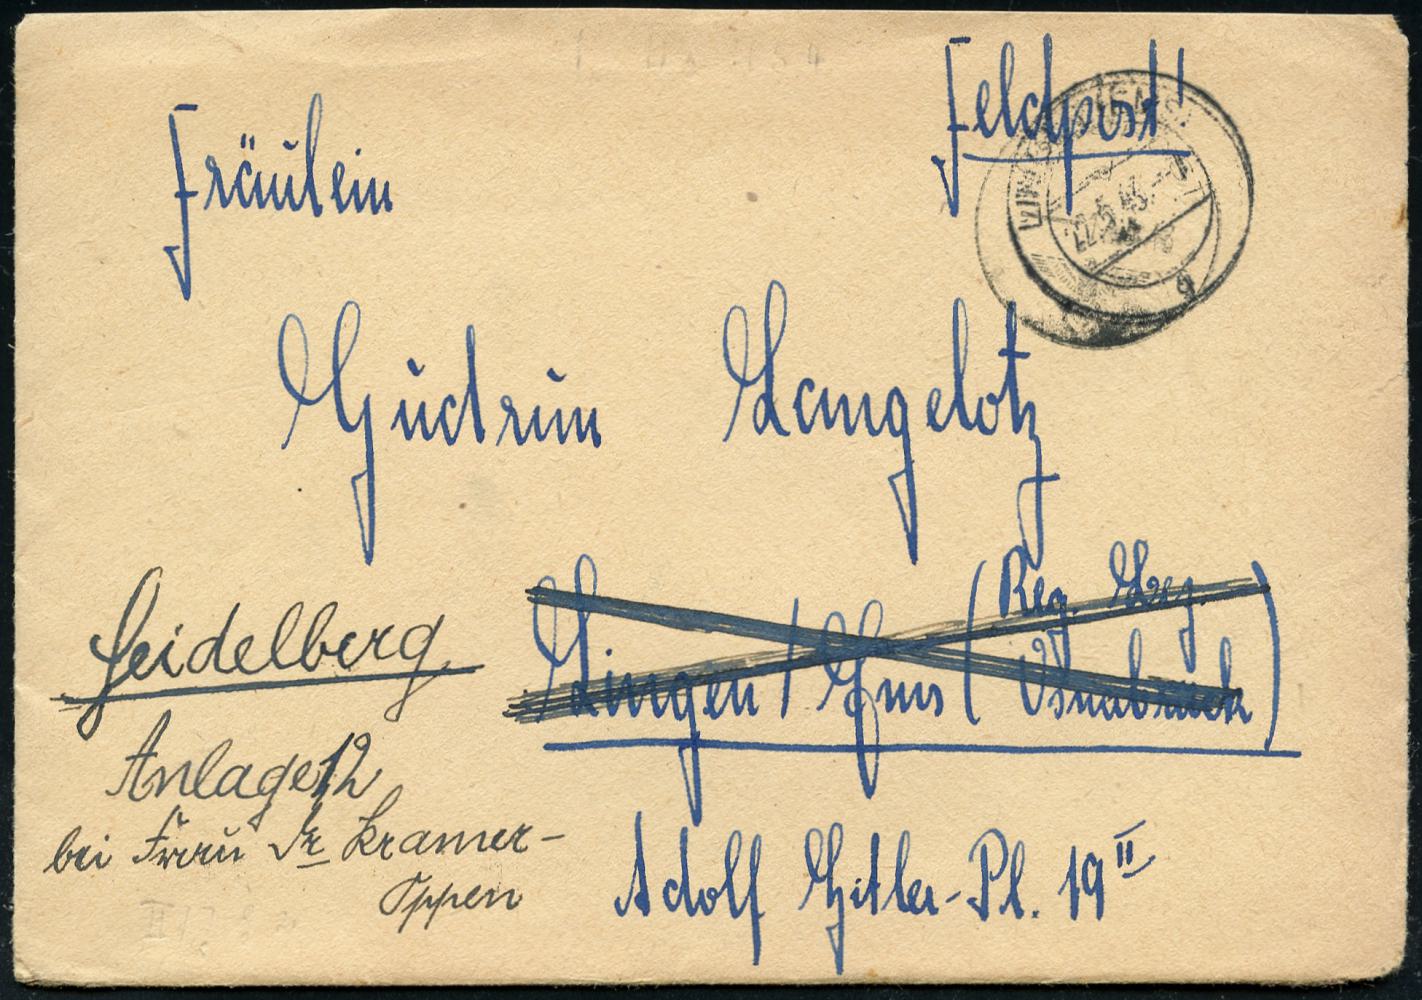 Feldpost!
Fräulein
Gudrun Langelotz
Lingen / Ems (Reg. Bez.
Osnabrück)
Adolf Hitler-Pl. 19 II
Heidelberg
Anlage 12
bei Frau Dr Kramer-
Oppen
22.5.43.
g